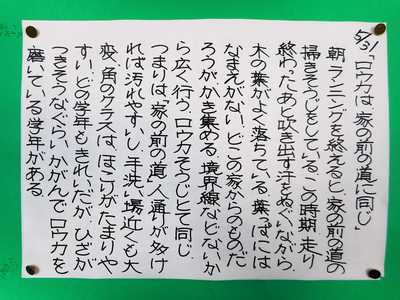 5/31 「ロウカは家の前の道に同じ」
朝ランニングを終えると、家の前の道の
掃きそうじをしている。この時期、走り
終わったあと吹き出す汗をぬぐいながら。
木の葉がよく落ちている。葉っぱには
なまえがない。どこの家からのものだ
ろうが、かき集める。境界線などないか
ら広く行う。ロウカそうじとて同じ。
つまりは、家の前の道、人通りが多け
れば汚れやすいし、手洗い場近くも大
変、角のクラスは、ほこりがたまりや
すい。どの学年もきれいだが、ひざが
つきそうなぐらいかがんで、ロウカを
磨いている学年がある。